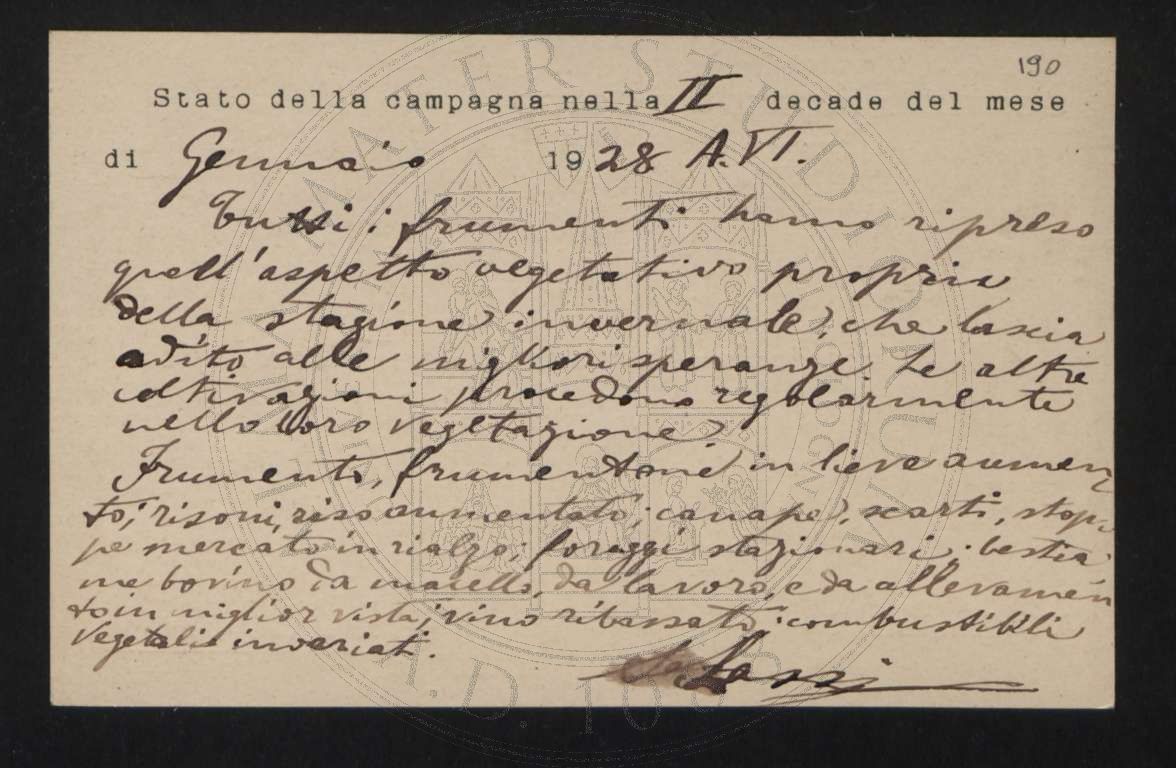 190
Stato della campagna nella II decade del mese
di Gennaio 1928 A. VI.
Tutti i frumenti hanno ripreso
quell'aspetto vegetativo proprio
della stagione invernale, che lascia
adito alle migliori speranze. Le altre
coltivazioni procedono regolarmente
nella loro vegetazione.
Frumento, frumentone in lieve aumen
to; risoni, riso aumentato; canape, scarti, stop
pe mercato in rialzo; foraggi stazionari; bestia
me bovino da macello, da lavoro, e da allevamen
to in miglior vista; vino ribassato; combustibili
vegetali invariati.
ALMA MATER STUDIORUM
A.D. 1088